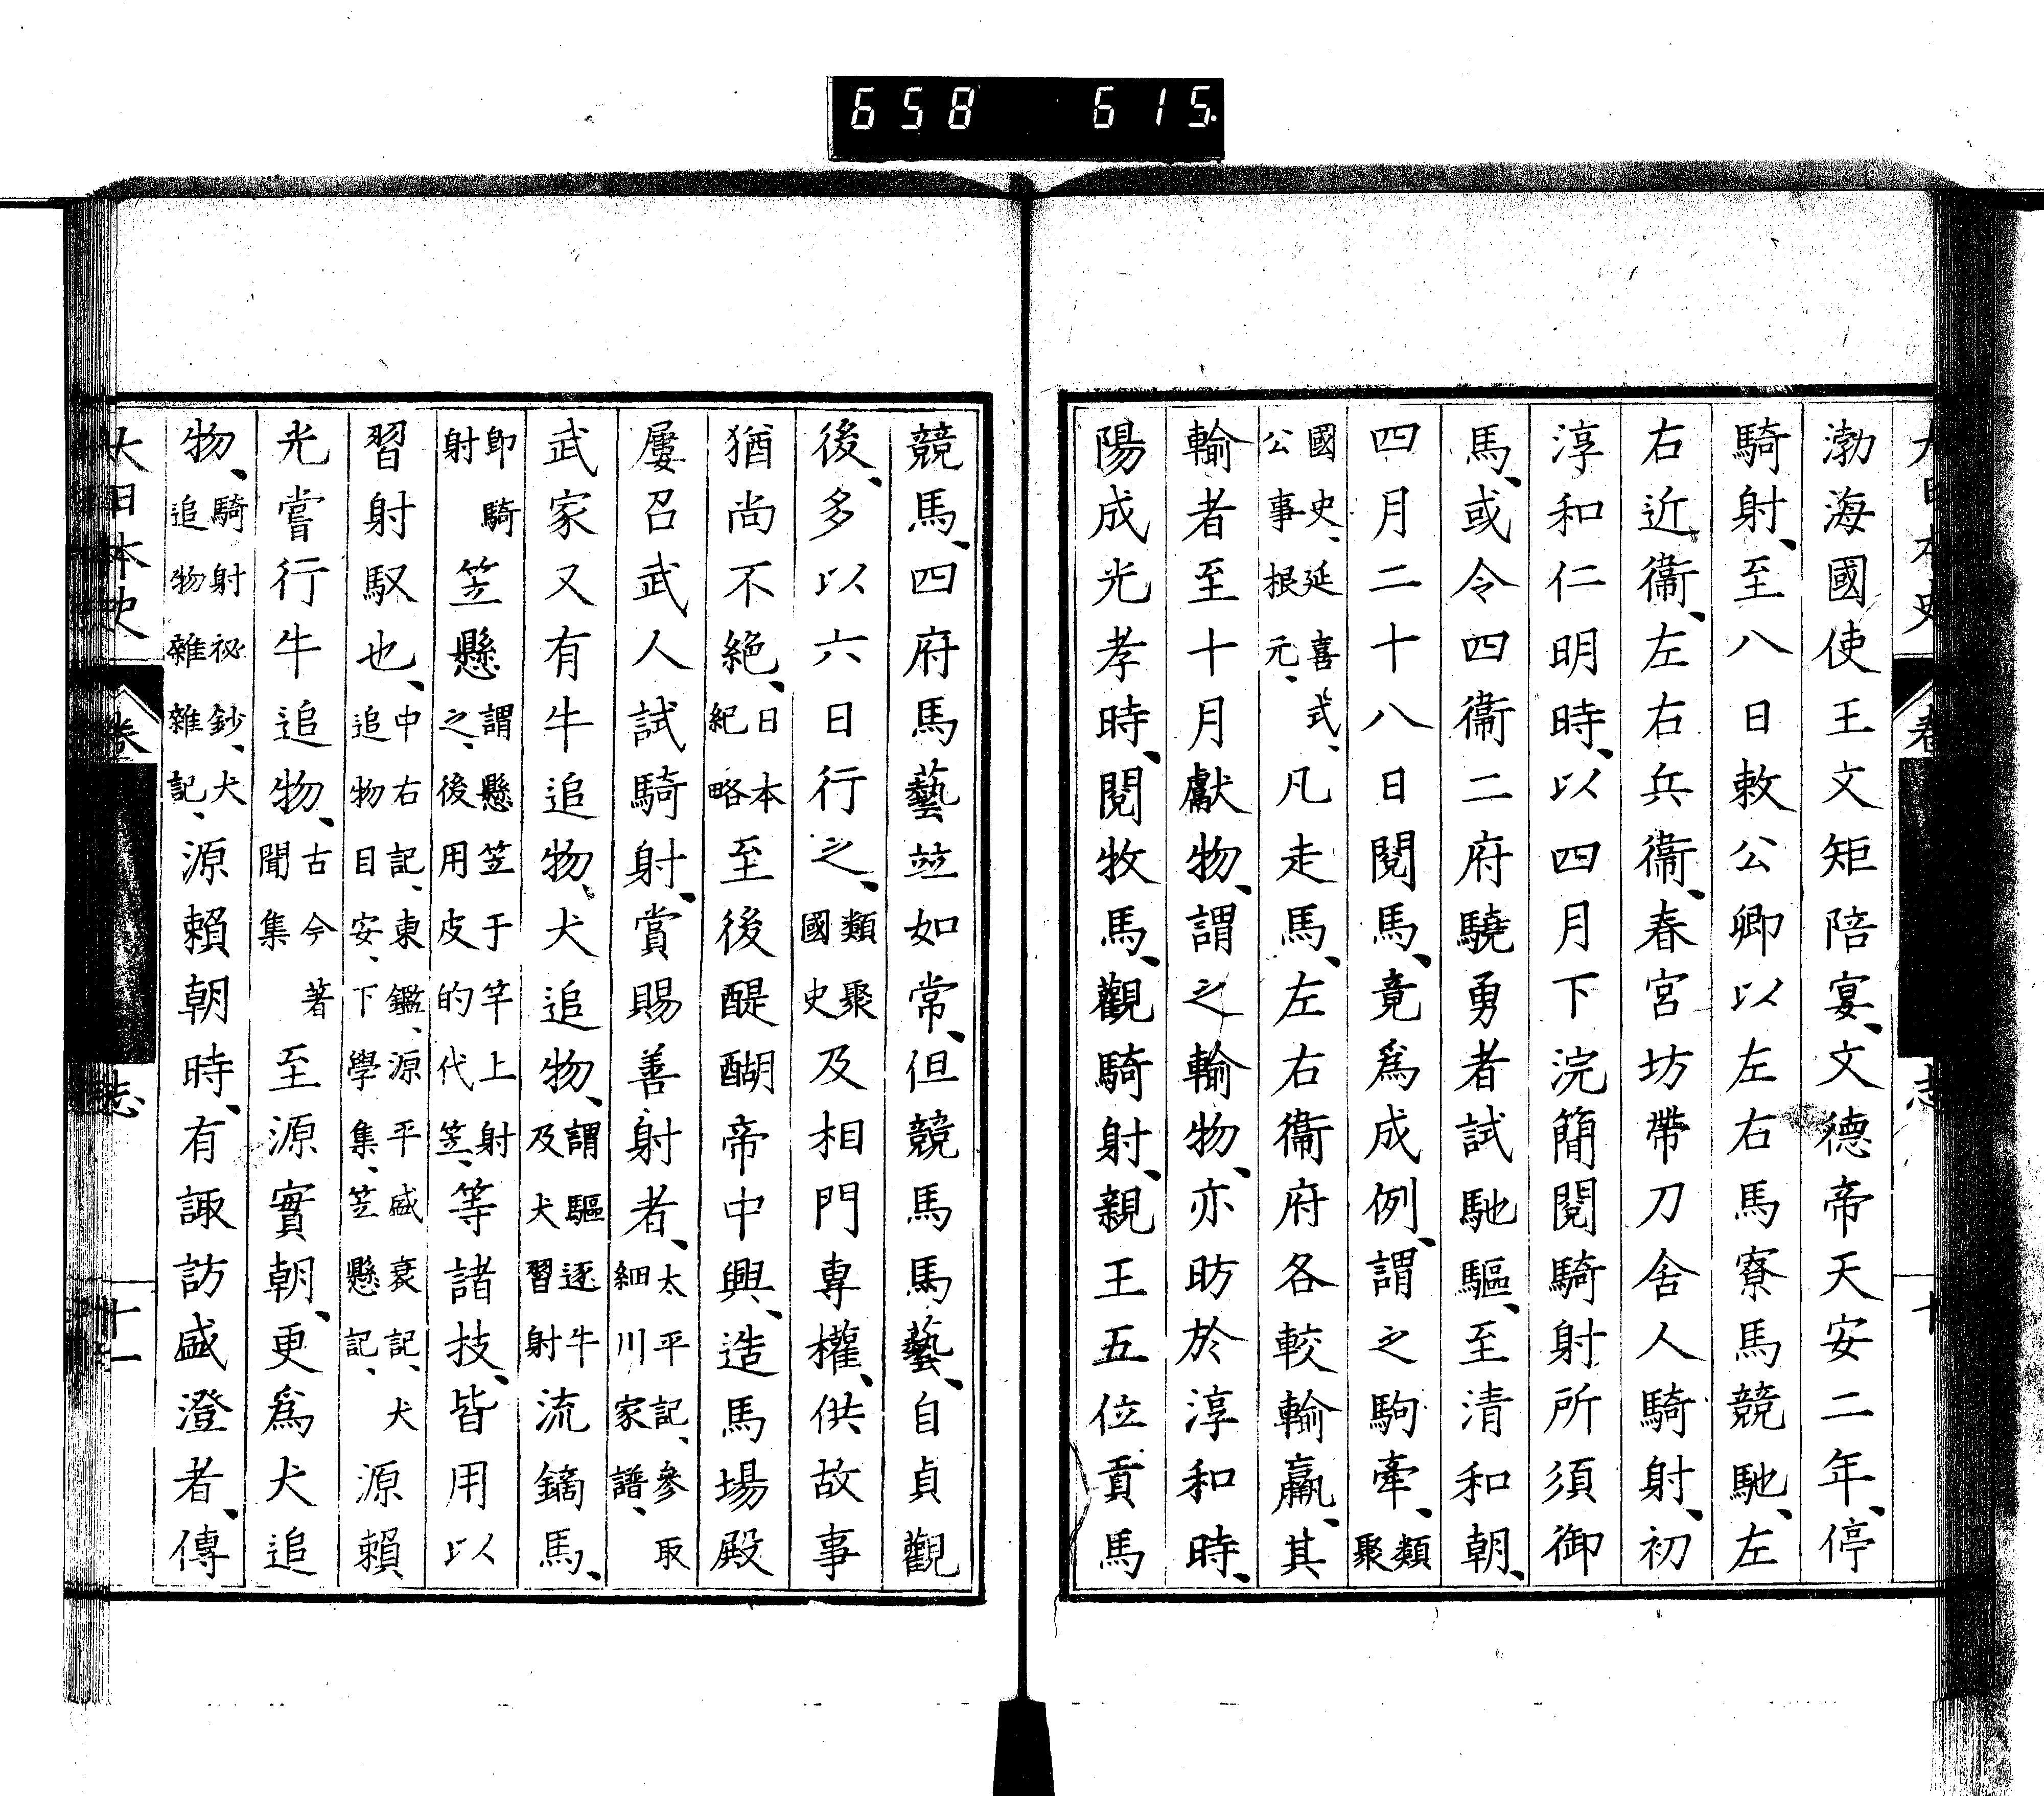 658 615
渤海國使王文矩陪宴、文德帝天安二年、停
騎射、至八日敕公卿以左右馬寮馬競馳、左
右近衞、左右兵衞、春宮坊帶刀舍人騎射、初
淳和仁明時、以四月下浣簡閱騎射所須御
馬、或令四衞二府驍勇者試馳驅、至清和朝、
四月二十八日閱馬、竟爲成例、謂之駒牽、類聚
國史、延喜式、公事根元、凡走馬、左右衞府各較輸贏、其
輸者至十月獻物、謂之輸物、亦昉於淳和時、
陽成光孝時、閱牧馬、觀騎射、親王五位貢馬
競馬、四府馬藝竝如常、但競馬馬藝、自貞觀
後、多以六日行之、類聚國史及相門專權、供故事
猶尚不絕、日本紀略至後醍醐帝中興、造馬場殿
屢召武人試騎射、賞賜善射者、太平記、參取細川家譜、
武家又有牛追物、犬追物、謂驅逐牛及犬習射流鏑馬、
卽騎射笠懸謂懸笠于竿上射之、後用皮的代笠、等諸技、皆用以
習射馭也、中右記、東鑑、源平盛衰記、犬追物目安、下學集、笠懸記、源賴
光嘗行牛追物、古今著聞集至源實朝、更爲犬追
物、騎射祕鈔、犬追物雜雜記、源賴朝時、有諏訪盛澄者、傳
大日本史 卷 志 十一